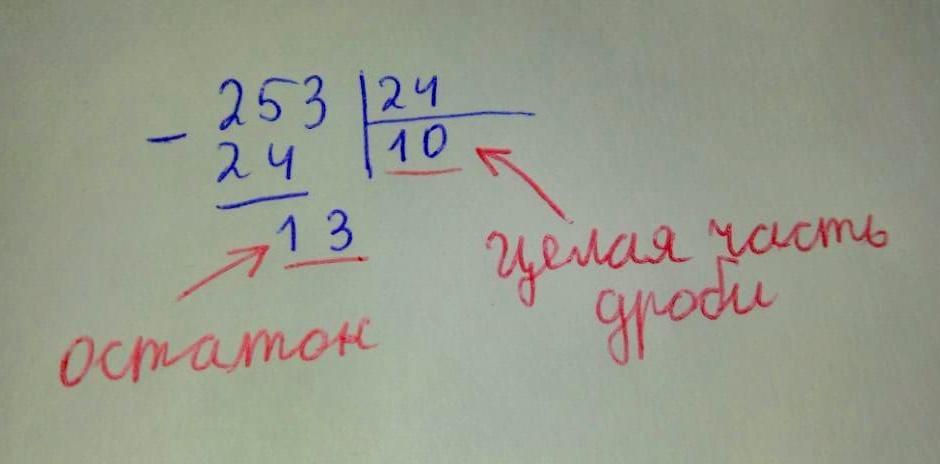 - 253 24
24 10
13
целая часть
дроби
остаток